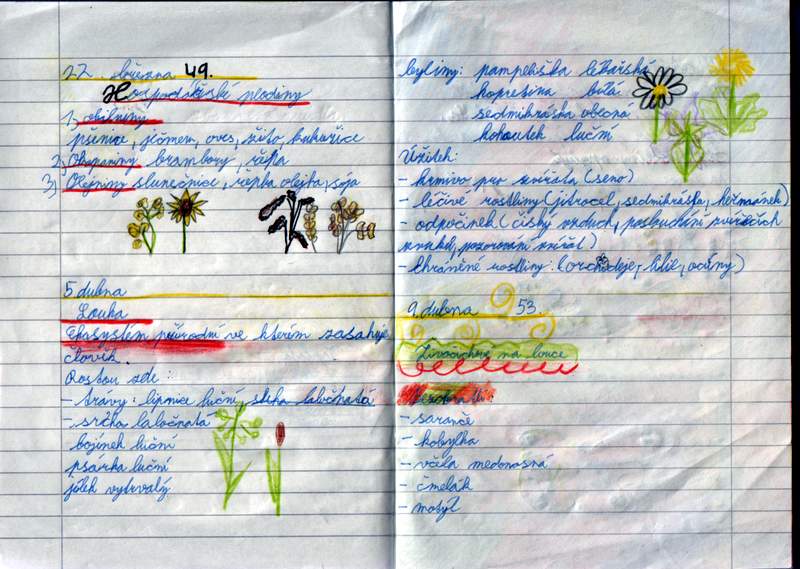 22. března 49.
Hospodářské plodiny
1, obilniny
pšenice, ječmen, oves, žito, kukuřice
2, Okopaniny brambory, řepa
3, Olejniny slunečnice, řepka olejka, sója
5. dubna
Louka
Ekosystém přírodní ve kterém zasahuje
člověk.
Rostou zde:
- trávy: lipnice luční, srha laločnatá
- srha laločnatá
bojínek luční
psárka luční
jílek vytrvalý
byliny: pampeliška lékařská
kopretina bílá
sedmikráska obecná
kohoutek luční
Užitek:
- krmivo pro zvířata (seno)
- léčivé rostliny (jitrocel, sedmikráska, heřmánek)
- odpočinek (čistý vzduch, poslouchání zvířecích
zvuků, pozorování zvířat)
- Chráněné rostliny: (orchideje, lilie, ocúny)
9. dubna 53.
Živočichové na louce
Bezobratlí:
- saranče
- kobylka
- včela medonosná
- čmelák
- motýl